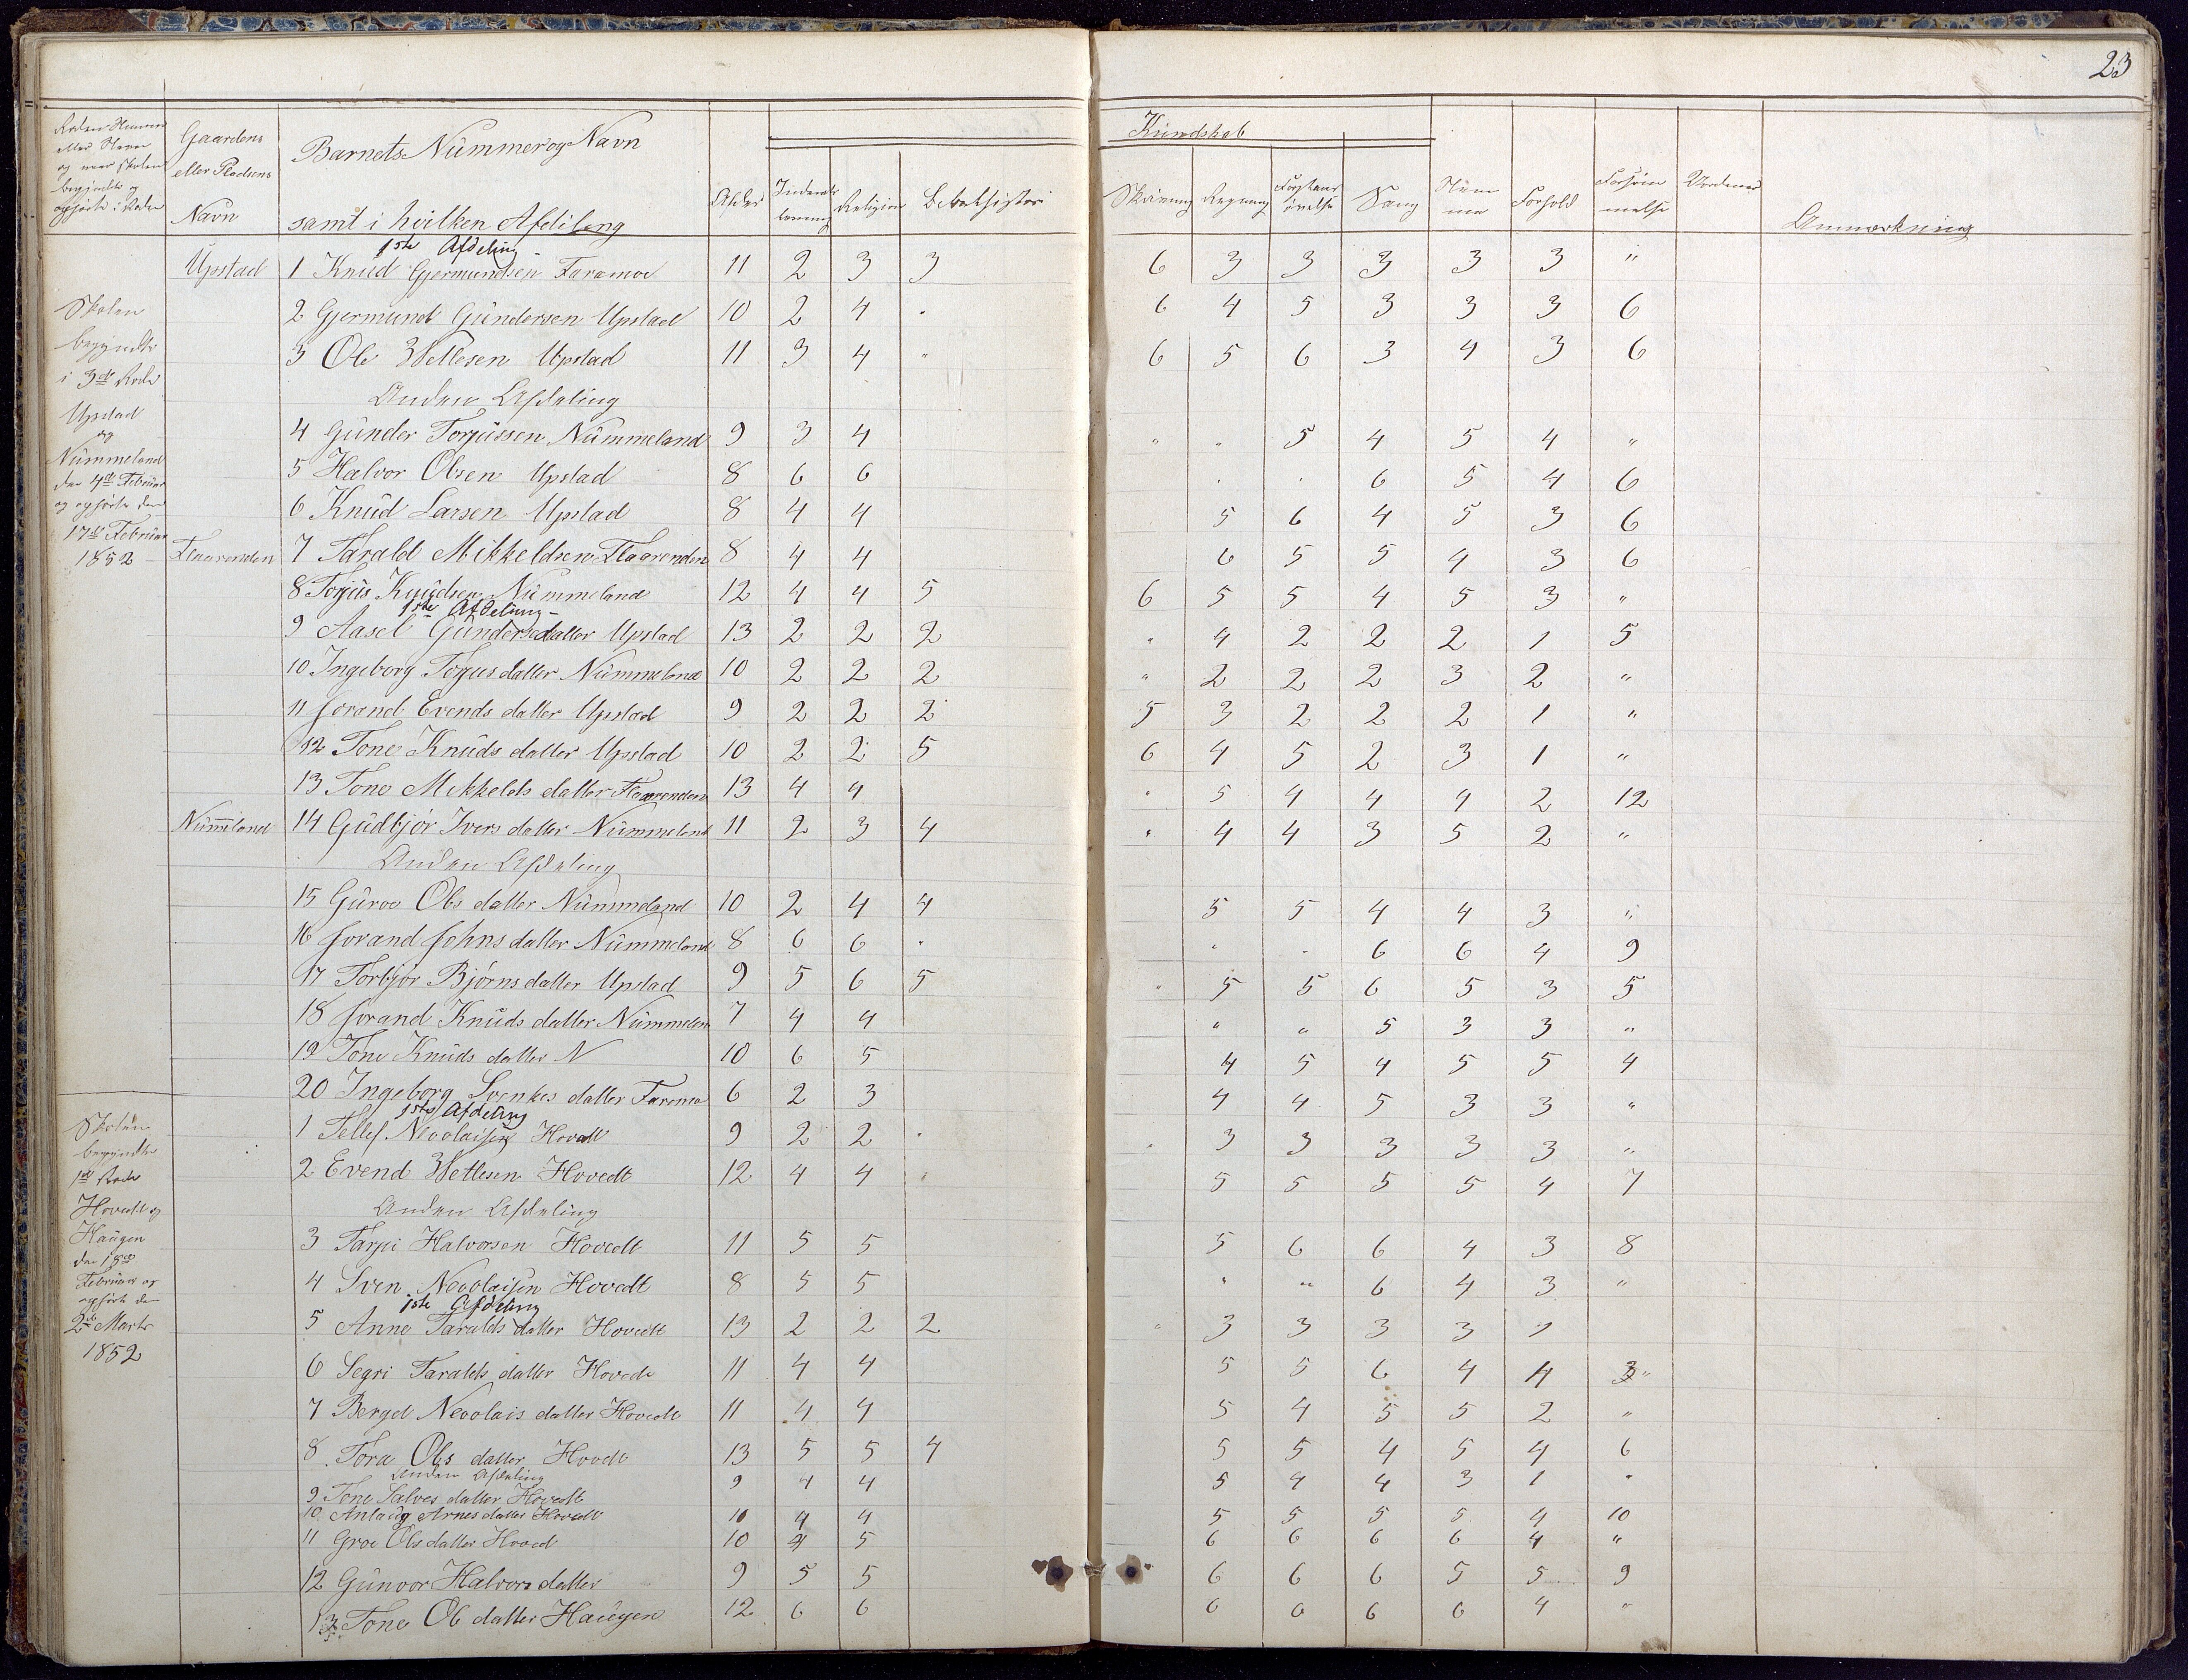 23
Kundskab
Rodens Nummer eller Navn og naar Skolen begyndte og ophörte i Roden
Gaardens eller Pladsens Navn
Barnets Nummer og Navn samt i hvilken Afdeling
Alder
Religion
Skrivning
Regning
Sang
Forhold
Forsömmelse
Anmærkning
1ste Afdeling
Upstad 1 Knud Gjermundsen Faramoe 11 2 3 3 6 3 3 3 3 3 "
2 Gjermund Gundersen Upstad 10 2 4 " 6 4 5 3 3 3 6
3 Ole Wetlesen Upstad 11 3 4 " 6 5 6 3 4 3 6
Anden Afdeling
4 Gunder Torjussen Nummeland 9 3 4 " " 5 4 5 4 "
5 Halvor Olsen Upstad 8 6 6 " " 6 5 4 6
6 Knud Larsen Upstad 8 4 4 5 6 4 5 3 6
Flaarenden 7 Tarald Mikkeldsen Flaarenden 8 4 4 6 5 5 4 3 6
8 Torjus Knudsen Nummeland 12 4 4 5 6 5 5 4 5 3 "
1ste Afdeling
9 Aasel Gundersdatter Upstad 13 2 2 2 " 4 2 2 2 1 5
10 Ingeborg Torjusdatter Nummeland 10 2 2 2 " 2 2 2 3 2 "
11 Jorand Evends datter Upstad 9 2 2 2 5 3 2 2 2 1 "
12 Tone Knuds datter Upstad 10 2 2 5 6 4 5 2 3 1 "
13 Tone Mikkelds datter Flaarenden 13 4 4 " 5 4 4 4 2 12
Nummeland 14 Gudbjör Ivers datter Nummeland 11 2 3 4 " 4 4 3 5 2 "
Anden Afdeling
15 Guroe Ols datter Nummeland 10 2 4 4 5 5 4 4 3 "
16 Jorand Johns datter Nummeland 8 6 6 " " " 6 6 4 9
17 Torbjör Björns datter Upstad 9 5 6 5 " 5 5 6 5 3 5
18 Jorand Knuds datter Nummelan 7 4 4 " " 5 3 3 "
19 Tone Knuds datter N 10 6 5 4 5 4 5 5 4
20 Ingeborg Svenkes datter Faramo 6 2 3 4 4 5 3 3 "
Skolen
begyndte
i 3die Rode
Upstad
og
Nummeland
den 4de Februar
og ophörte den
17de Februar
1852
1ste Afdeling
1 Tellef Neoolaisen Hovedt 9 2 2 " " 3 3 3 3 3 "
2 Evend Wetlesen Hovedt 12 4 4 " 5 5 5 5 4 7
Anden Afdeling
3 Tarjei Halvorsen Hovedt 11 5 5 5 6 6 4 3 8
4 Sven Neoolaisen Hovedt 8 5 5 " " 6 4 3 "
1ste Afdeling
5 Anne Taralds datter Hovedt 13 2 2 2 " 3 3 3 3 1
6 Segri Taralds datter Hovedt 11 4 4 5 5 6 4 4 3 "
7 Berget Neoolais datter Hovedt 11 4 4 5 4 5 5 2 "
8 Tora Ols datter Hovdt 13 5 5 4 5 5 4 5 4 6
Anden Afdeling
9 Tone Salves datter Hovedt 9 4 4 5 4 4 3 1 "
10 Anlaug Arnes datter Hovedt 10 4 4 5 5 5 5 4 10
11 Groe Ols datter Hoved 10 4 5 6 6 6 6 4 "
12 Gunvor Halvors datter 9 5 5 6 6 6 5 5 9
13 Tone Ole datter Haugen 12 6 6 6 6 6 6 4 "
Skolen
begyndte
1ste Rode
Hovedt og
Haugen
den 18de
Februar og
ophörte den
2den Marts
1852